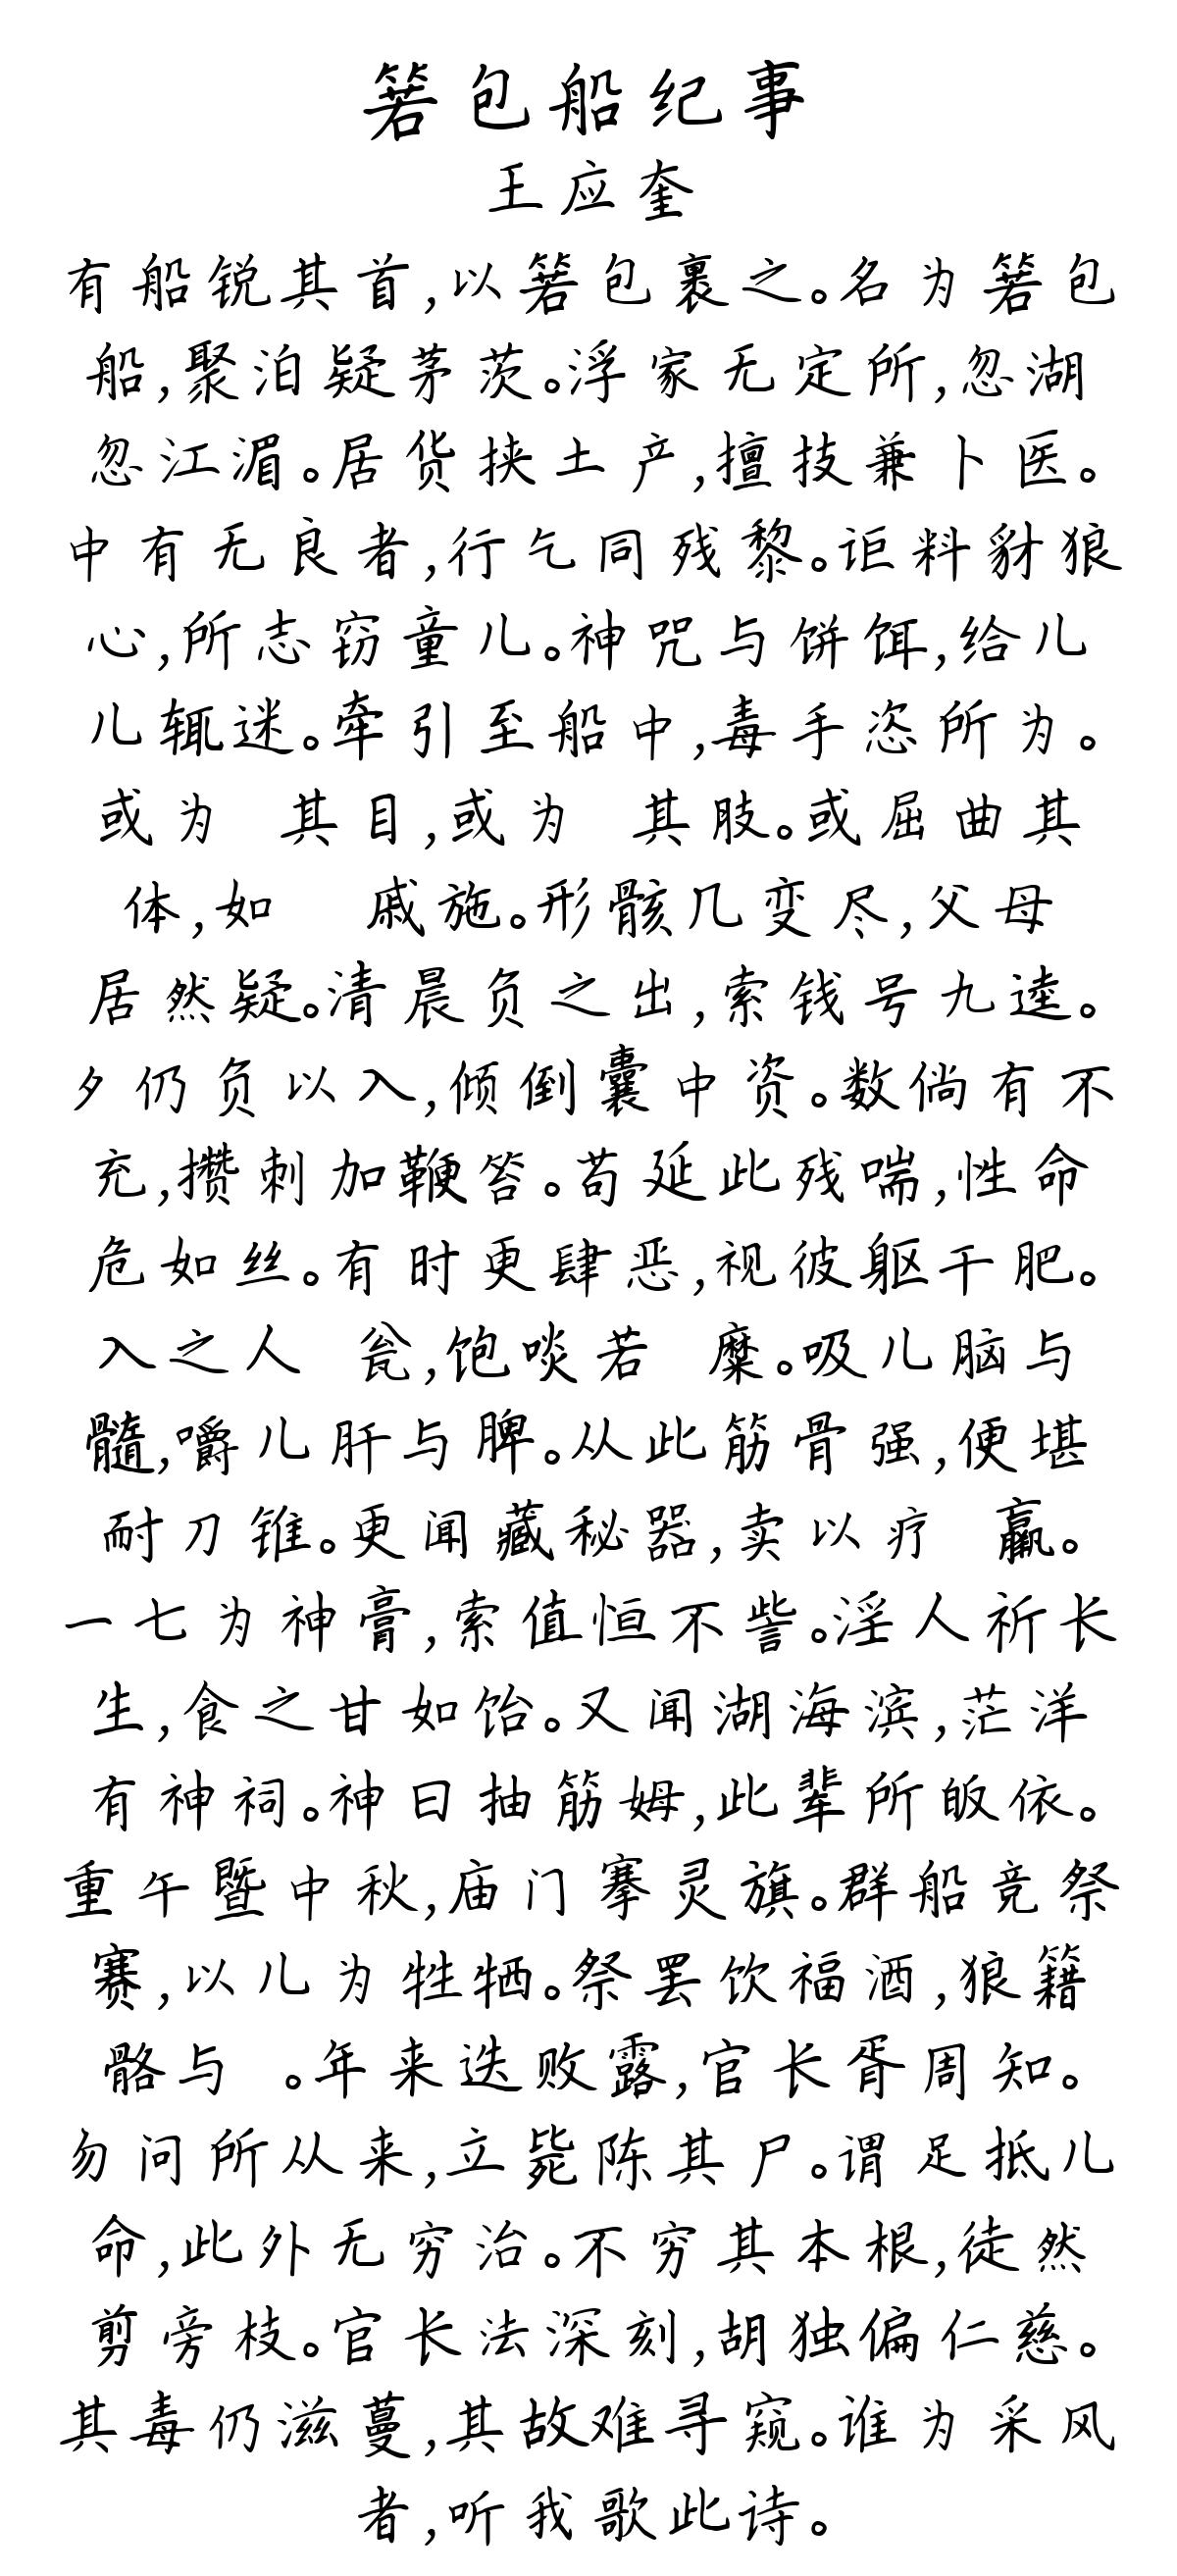 箬包船纪事
王应奎
有船锐其首,以箬包裹之。名为箬包
船,聚泊疑茅茨。浮家无定所,忽湖
忽江湄。居货挟土产,擅技兼卜医。
中有无良者,行乞同残黎。讵料豺狼
心,所志窃童儿。神咒与饼饵,给儿
儿辄迷。牵引至船中,毒手恣所为。
或为 其目,或为 其肢。或屈曲其
体,如 戚施。形骸几变尽,父母
居然疑。清晨负之出,索钱号九逵。
夕仍负以入,倾倒囊中资。数倘有不
充,攒刺加鞭笞。苟延此残喘,性命
危如丝。有时更肆恶,视彼躯干肥。
入之人 瓮,饱啖若 糜。吸儿脑与
髓,嚼儿肝与脾。从此筋骨强,便堪
耐刀锥。更闻藏秘器,卖以疗 羸。
一七为神膏,索值恒不訾。淫人祈长
生,食之甘如饴。又闻湖海滨,茫洋
有神祠。神曰抽筋姆,此辈所皈依。
重午暨中秋,庙门搴灵旗。群船竞祭
赛,以儿为牲牺。祭罢饮福酒,狼籍
骼与 。年来迭败露,官长胥周知。
勿问所从来,立毙陈其尸。谓足抵儿
命,此外无穷治。不穷其本根,徒然
剪旁枝。官长法深刻,胡独偏仁慈。
其毒仍滋蔓,其故难寻窥。谁为采风
者,听我歌此诗。